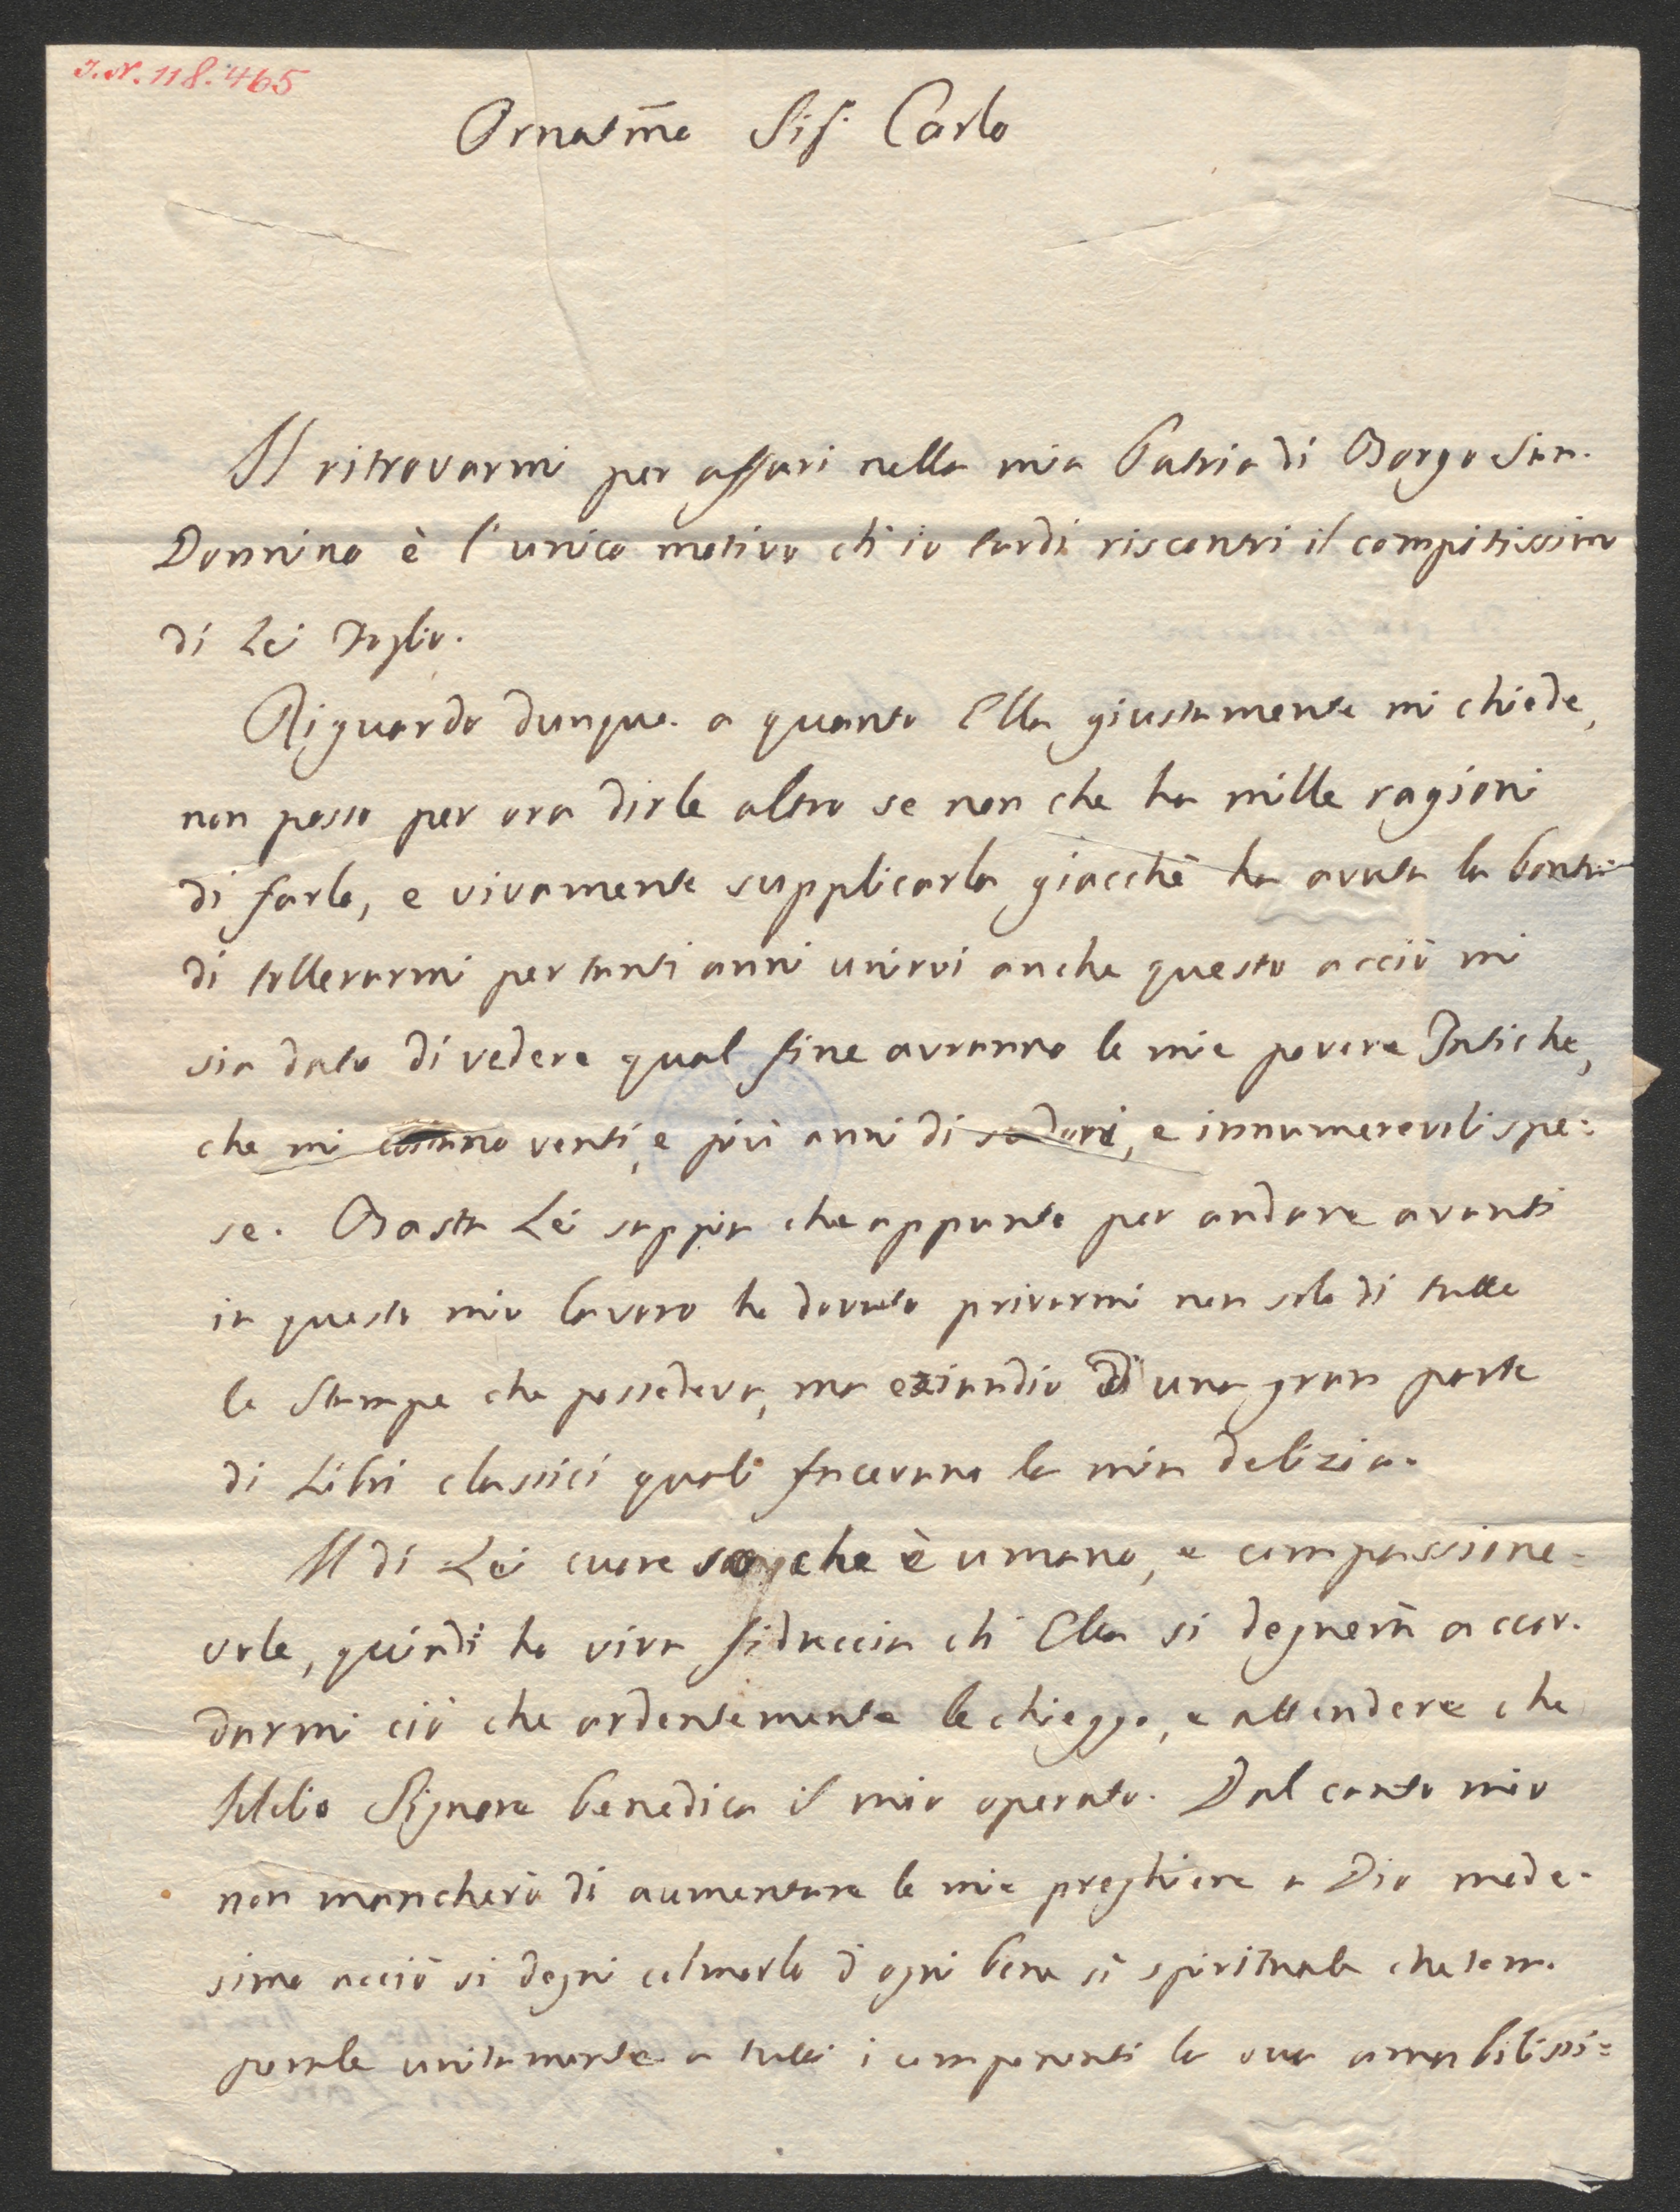 I.N. 118.465
Ornatm̃o Sig. Carlo
Il ritrovarmi per affari nella mia Patria di Borgo San.
Donnino è l'unico motivo ch'io tardi riscontri il compitissimo
di Lei Foglio.
Riguardo dunque a quanto Ella giustamente mi chiede,
non posso per ora dirle altro se non che ha mille ragioni
di farlo, e vivamente supplicarla giacchè ha avuta la bontà
di tollerarmi per tanti anni unirvi anche questo acciò mi
sia dato di vedere qual fine avranno le mie povere Fatiche,
che mi costano venti, e più anni di sudori, e innumerevoli spe=
se. Basta Lei sappia che appunto per andare avanti
in questo mio lavoro ho dovuto privarmi non solo di tutte
le Stampe che possedeva, ma eziandio di una gran parte
di Libri classici quali facevano la mia delizia.
Il di Lei cuore so che è umano, e compassione=
vole, quindi ho viva fiduccia ch'Ella si degnerà accor.
darmi ciò che ardentemente le chieggo, e attendere che
Iddio Signore benedica il mio operato. Dal canto mio
non mancherò di aumentare le mie preghiere a Dio mede.
simo acciò si degni colmarlo d'ogni bene sì spirituale che tem.
porale unitamente a tutti i componenti la sua amabilissi=